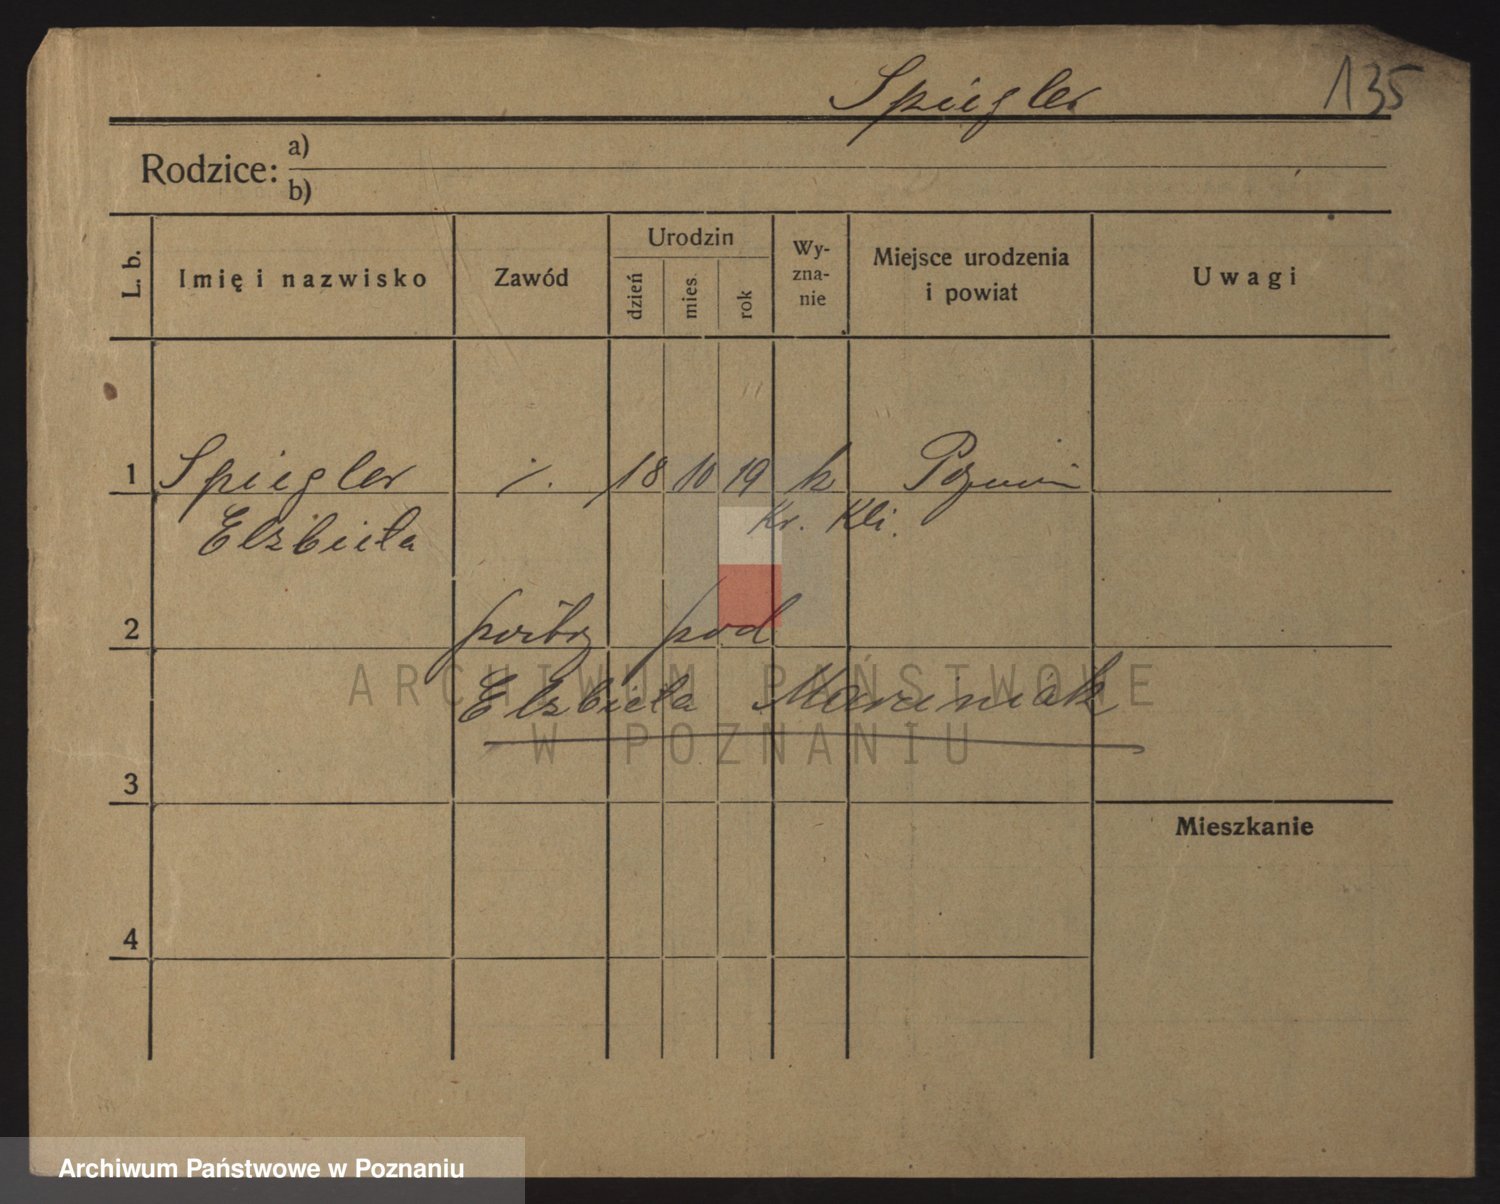 Spiegler 135
Rodzice: a)
b)
L. b. Imię i nazwisko Zawód Urodzin dzień mies. rok Wyznanie Miejsce urodzenia i powiat Uwagi
1 Spiegler ./. 18 10 19 k Poznań
Elżbieta Kr. Kli.
2 pod
Elżbieta Marciniak
3
Mieszkanie
4
ARCHIWUM PAŃSTWOWE
W POZNANIU
Archiwum Państwowe w Poznaniu